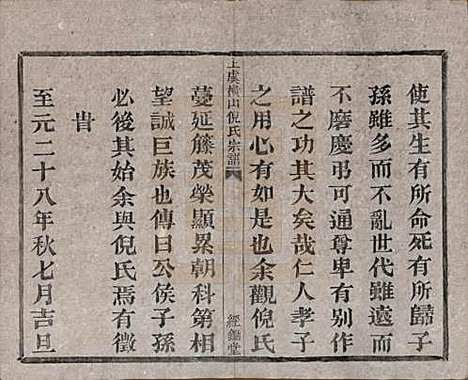 使其生有所命死有所歸子
孫雖多而不亂世代雖遠而
不磨慶弔可通尊卑有別作
譜之功其大矣哉仁人孝子
之用心有如是也余觀倪氏
上虞橫山倪氏宗譜
經鋤堂
蔓延籐茂榮顯累朝科第相
望誠巨族也傳曰公侯子孫
必後其始余與倪氏焉有徵
旹
至元二十八年秋七月吉旦